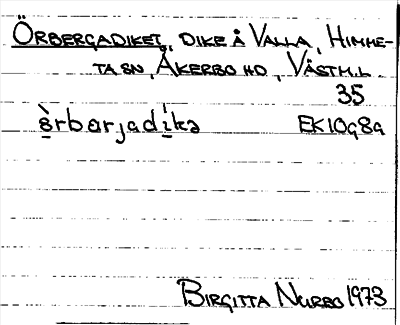 ÖRBERGADIKET, DIKE Å VALLA, HIMME-
TA SN, ÅKERBO HD, VÄSTM.L.
35
ö̀rbarjadíkə EK10g8a
BIRGITTA NURBO 1973